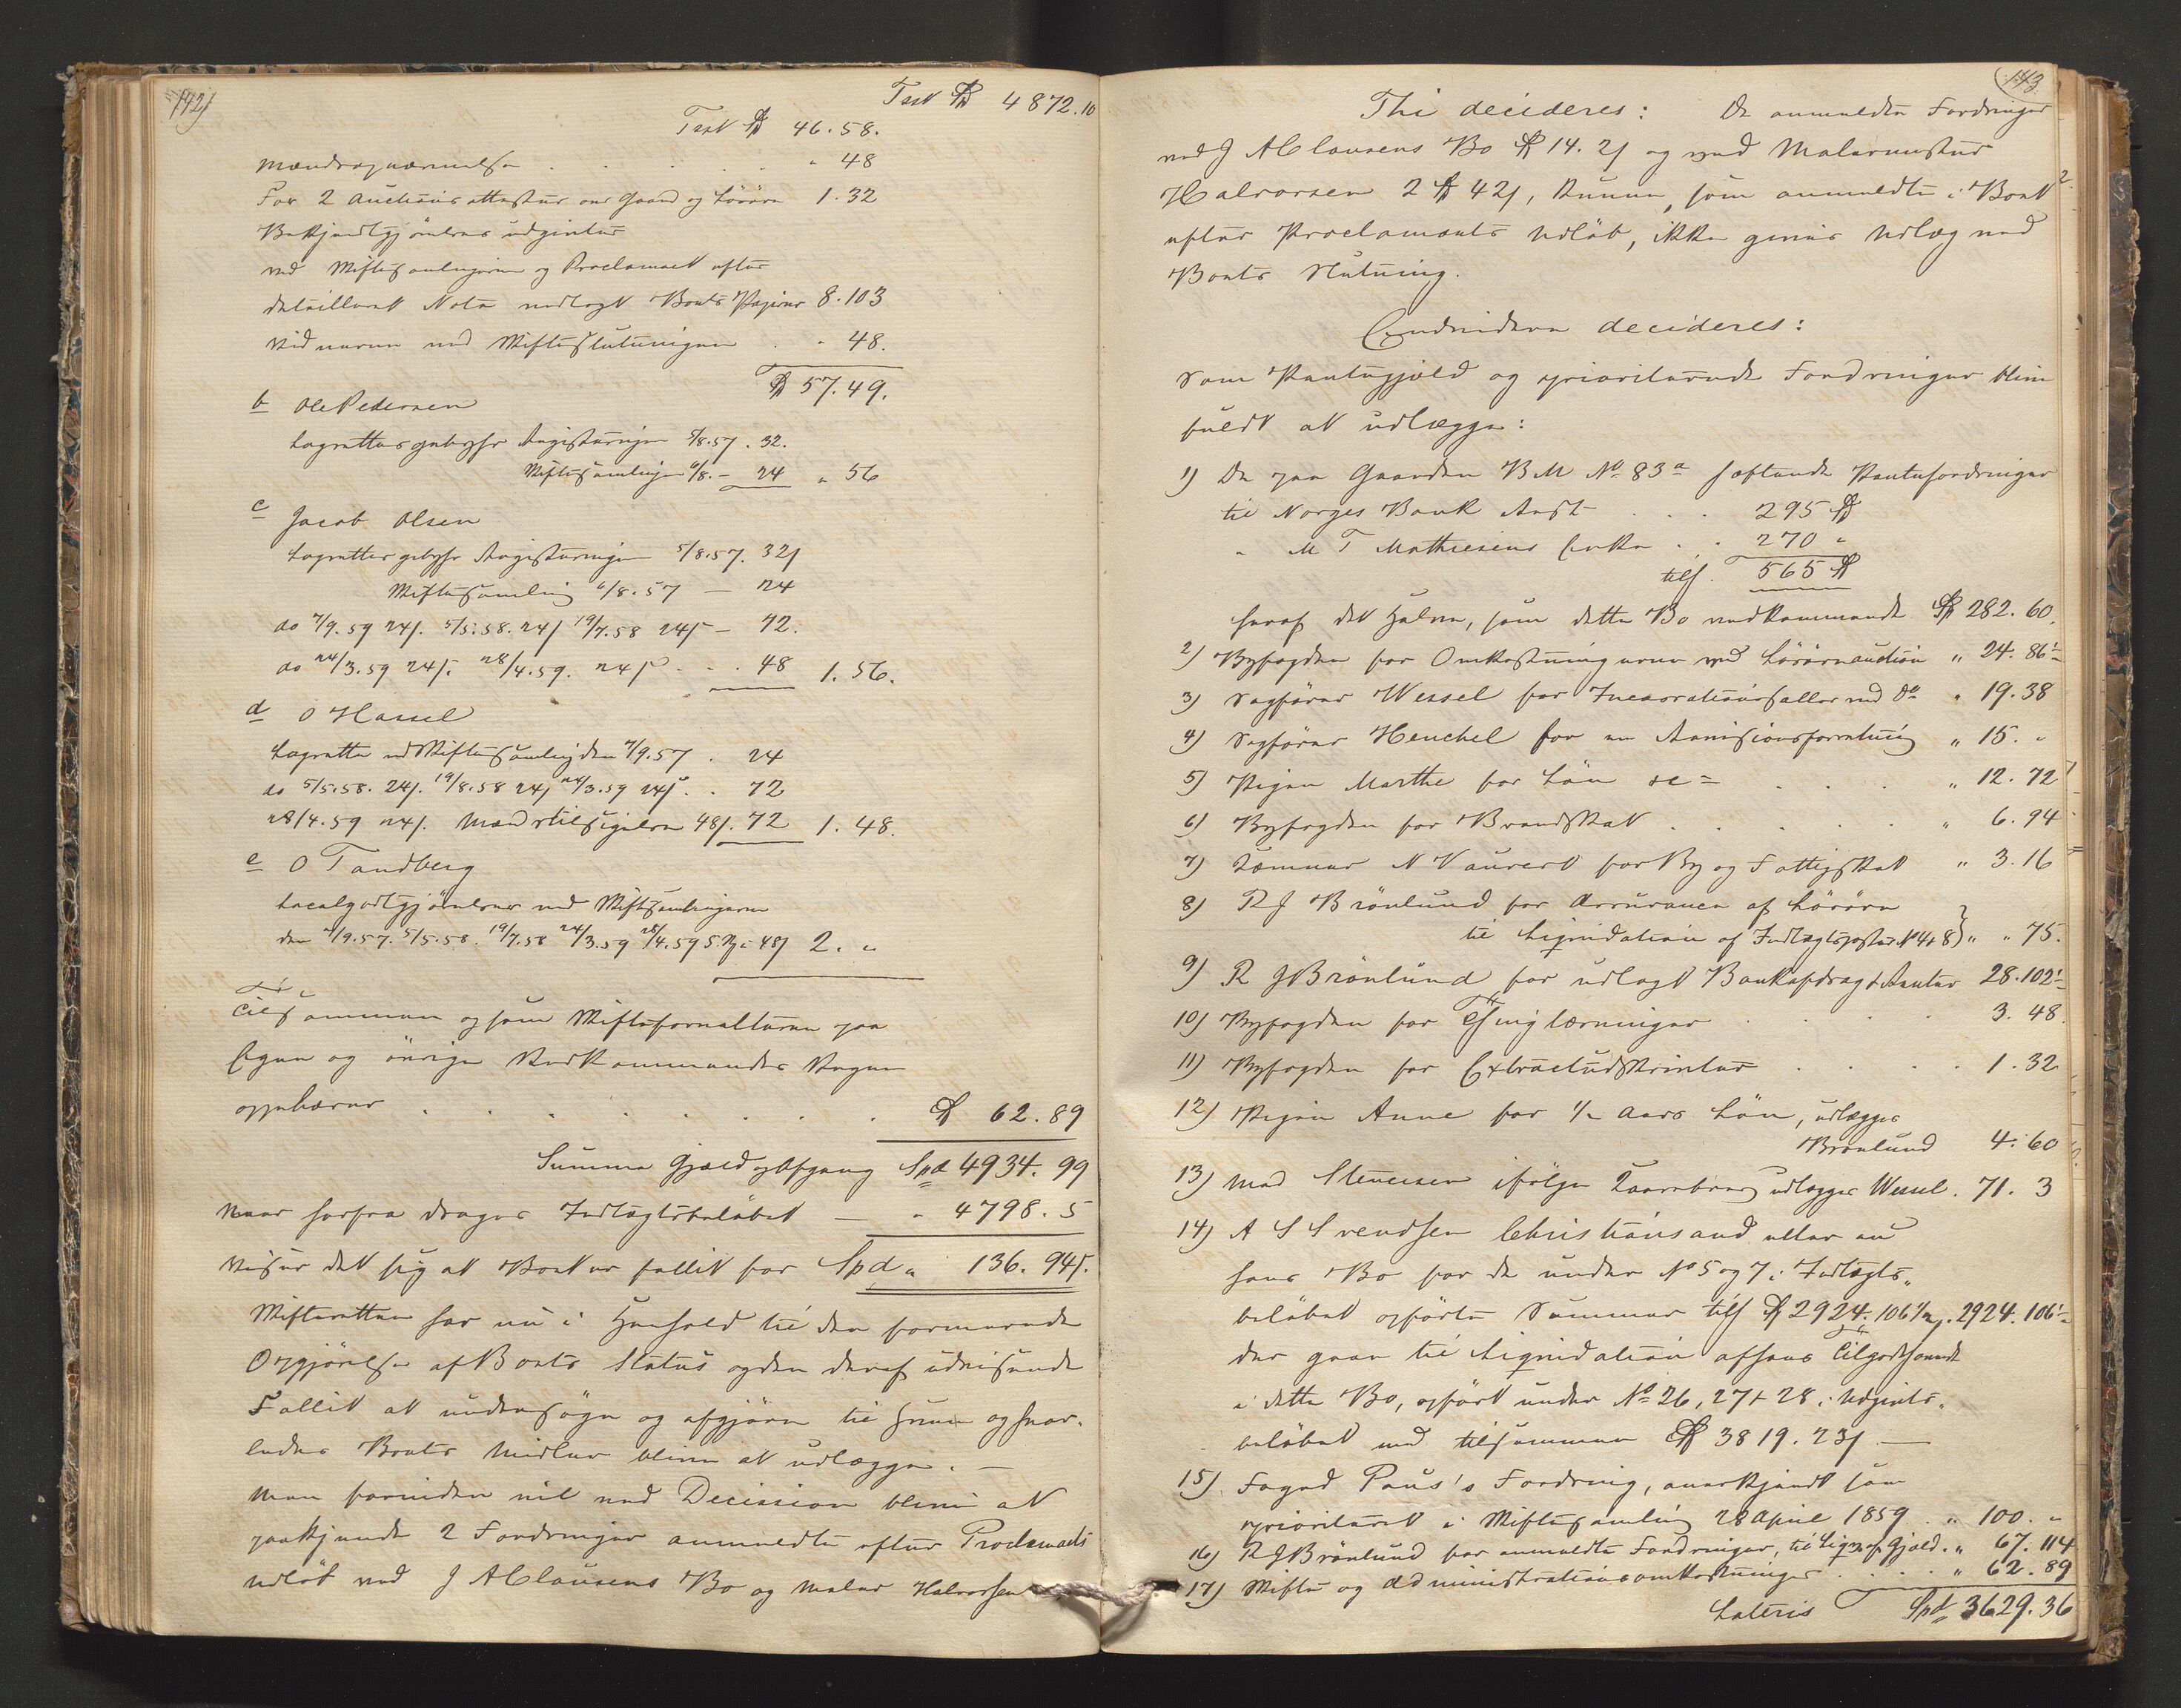 142)
Trsp. Spd 4872.10
Trsp. Spd 46.58.
Mændsopnævnelse . . . " 48
For 2 Auctionsattester over Gaard og Løsøre 1.32
Bekjendtgjørelsers udgivter
ved Skiftesamlingerne og Proclamaet efter
detailleret Nota vedlagt Boets Papirer 8.103
Vidnerne ved Skifteslutningen . . " 48.
Spd 57.49.
b Ole Pedersen
Lagrettesgebyhr Registeringen 5/8.57. 32.
Skiftesamlingen 6/8. — 24 " 56
c Jacob Olsen
Lagrettes gebyhr Registeringen 5/8.57. 32s
Skiftesamling 6/8.57 — 24
do 7/9.59 24s. 5/5.58. 24s 19/7.58 24s — 72.
do 24/3.59 24s. 28/4.59. 24s . . . 48 1.56.
d O Hassel
Lagrette ved Skiftesamling den 7/9.57 . 24
do 5/5.58. 24s. 19/8.58 24s 24/3.59 24s . . 72
28/4.59 24s. Mænds tilsigelse 48s. 72 1.48.
e O Tandberg
Localgodtgjørelser ved Skiftesamlingerne
den 7/9.57. 5/5.58. 19/7.58 24/3.59 28/4.59 5 G. a 48s 2. "
Tilsammen og som Skifteforvalteren paa
Egne og øvrige Vedkommendes Vegne
oppebærer . . . . . . . Spd 62.89
Summa Gjæld og Afgang Spd 4934.99
Naar herfra drages Indtægtsbeløbet — " 4798.5
viser det sig at Boet er fallit for Spd " 136.94s.
Skifteretten har nu i Henhold til den foranværende
Opgjørelse af Boets Status og den deraf udvisende
Fallit at undersøge og afgjøre til hvem og hvor-
ledes Boets Midler blive at udlægge. —
Men forinden vil ved Decission blive at
paakjende 2 Fordringer anmeldte efter Proclamaets
Udløb ved J A Clausens Bo og Maler Halvorsen
143.
Thi decideres: De anmeldte Fordringer
ved J A Clausens Bo Spd 14.2s og ved Malermester
Halvorsen 2 Spd 42s, kunne, som anmeldte i Boet
efter Proclamaets Udløb, ikke gives Udlæg ved
Boets Slutning.
Endvidere decideres:
Som Pantegjæld og prioriterede Fordringer blive
fuldt at udlægge:
1) De paa Gaarden B M No 83a heftende Pantefordringer
til Norges Bank Rest . . . 295 Spd
" M T Mathiesens Enke . . 270 "
tils. 565 Spd
heraf det Halve, som dette Bo vedkommende Spd 282.60.
2) Byfogden for Omkostningerne ved Løsøreauction " 24.86½
3) Sagfører Wessel for Incassationssallær ved do " 19.38
4) Sagfører Henchel for en Revisionsforretning " 15. "
5) Pigen Marthe for Løn &c . . . " 12.72
6) Byfogden for Brandskat . . . . . " 6.94
7) Kæmner N Lauvert for By og Fattigskat " 3.16
8) R J Brönlund for Assurance af Løsøre
til Liqvidation af Indtægtsposter No 4 & 8 } " " 75.
9) R J Brönlund for udlagt Bankafdrag & Renter 28.102½
10) Byfogden for Thinglæsninger . . . . 3.48
11) Byfogden for Extractudskrivter . . . . 1.32
12) Pigen Anne for ½ Aars Løn, udlægges
Brönlund 4.60
13) Mad Stenersen ifølge udlægges Wessel . 71. 3
14) A S Svendsen Christiansand eller nu
hans Bo for de under No 5 og 7 i Indtægts-
beløbet opførte Summer tils Spd 2924.106½ . 2924.106½
der gaar til Liqvidation af hans Tilgodehavende
i dette Bo, opført under No 26, 27 & 28 i Udgivts-
beløbet med tilsammen Spd 3819.23s —
15) Foged Paus's Fordring, anerkjendt som
prioriteret i Skiftesamling 28 April 1859 . " 100. "
16) R J Brönlund for anmeldte Fordringer, til Liqv. af Gjæld . " 67.114
17) Skifte og Administrationsomkostninger . . . . " 62.89
Lateris Spd 3629.36